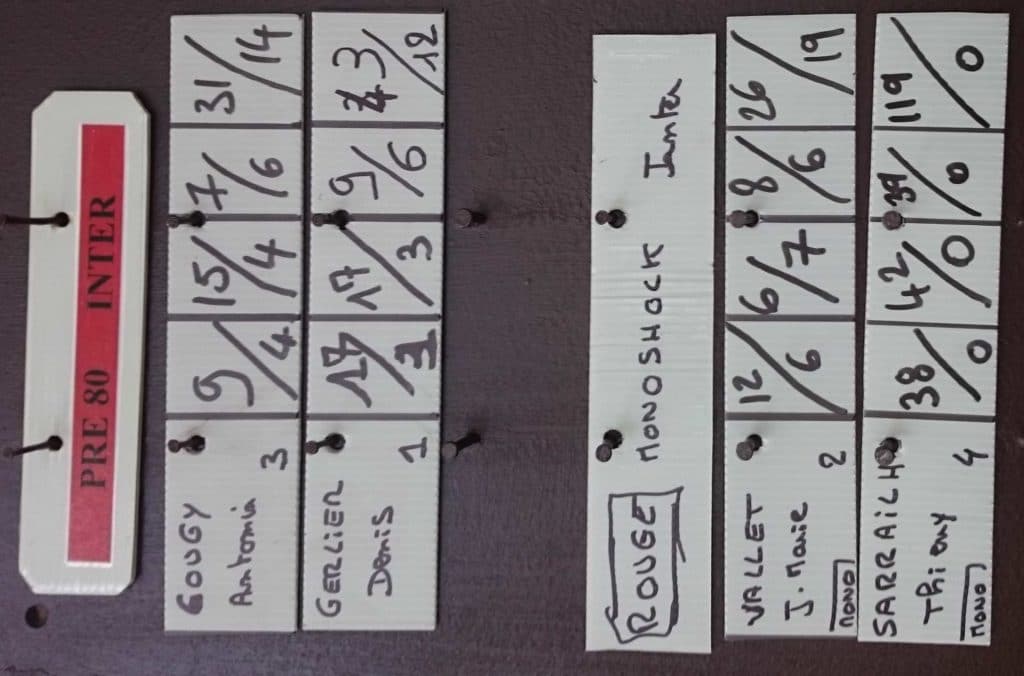 PRE 80 INTER
GOUGY 9/4 15/4 7/6 31/14
Antonin 3
GERLIER 17/3 17/3 9/6 43/12
Denis 1
ROUGE MONOSHOCK Inter
VALLET 12/6 6/7 8/6 26/19
J. Marie 2
MONO
SARRAILH 38/0 42/0 39/0 119/0
Thierry 4
MONO